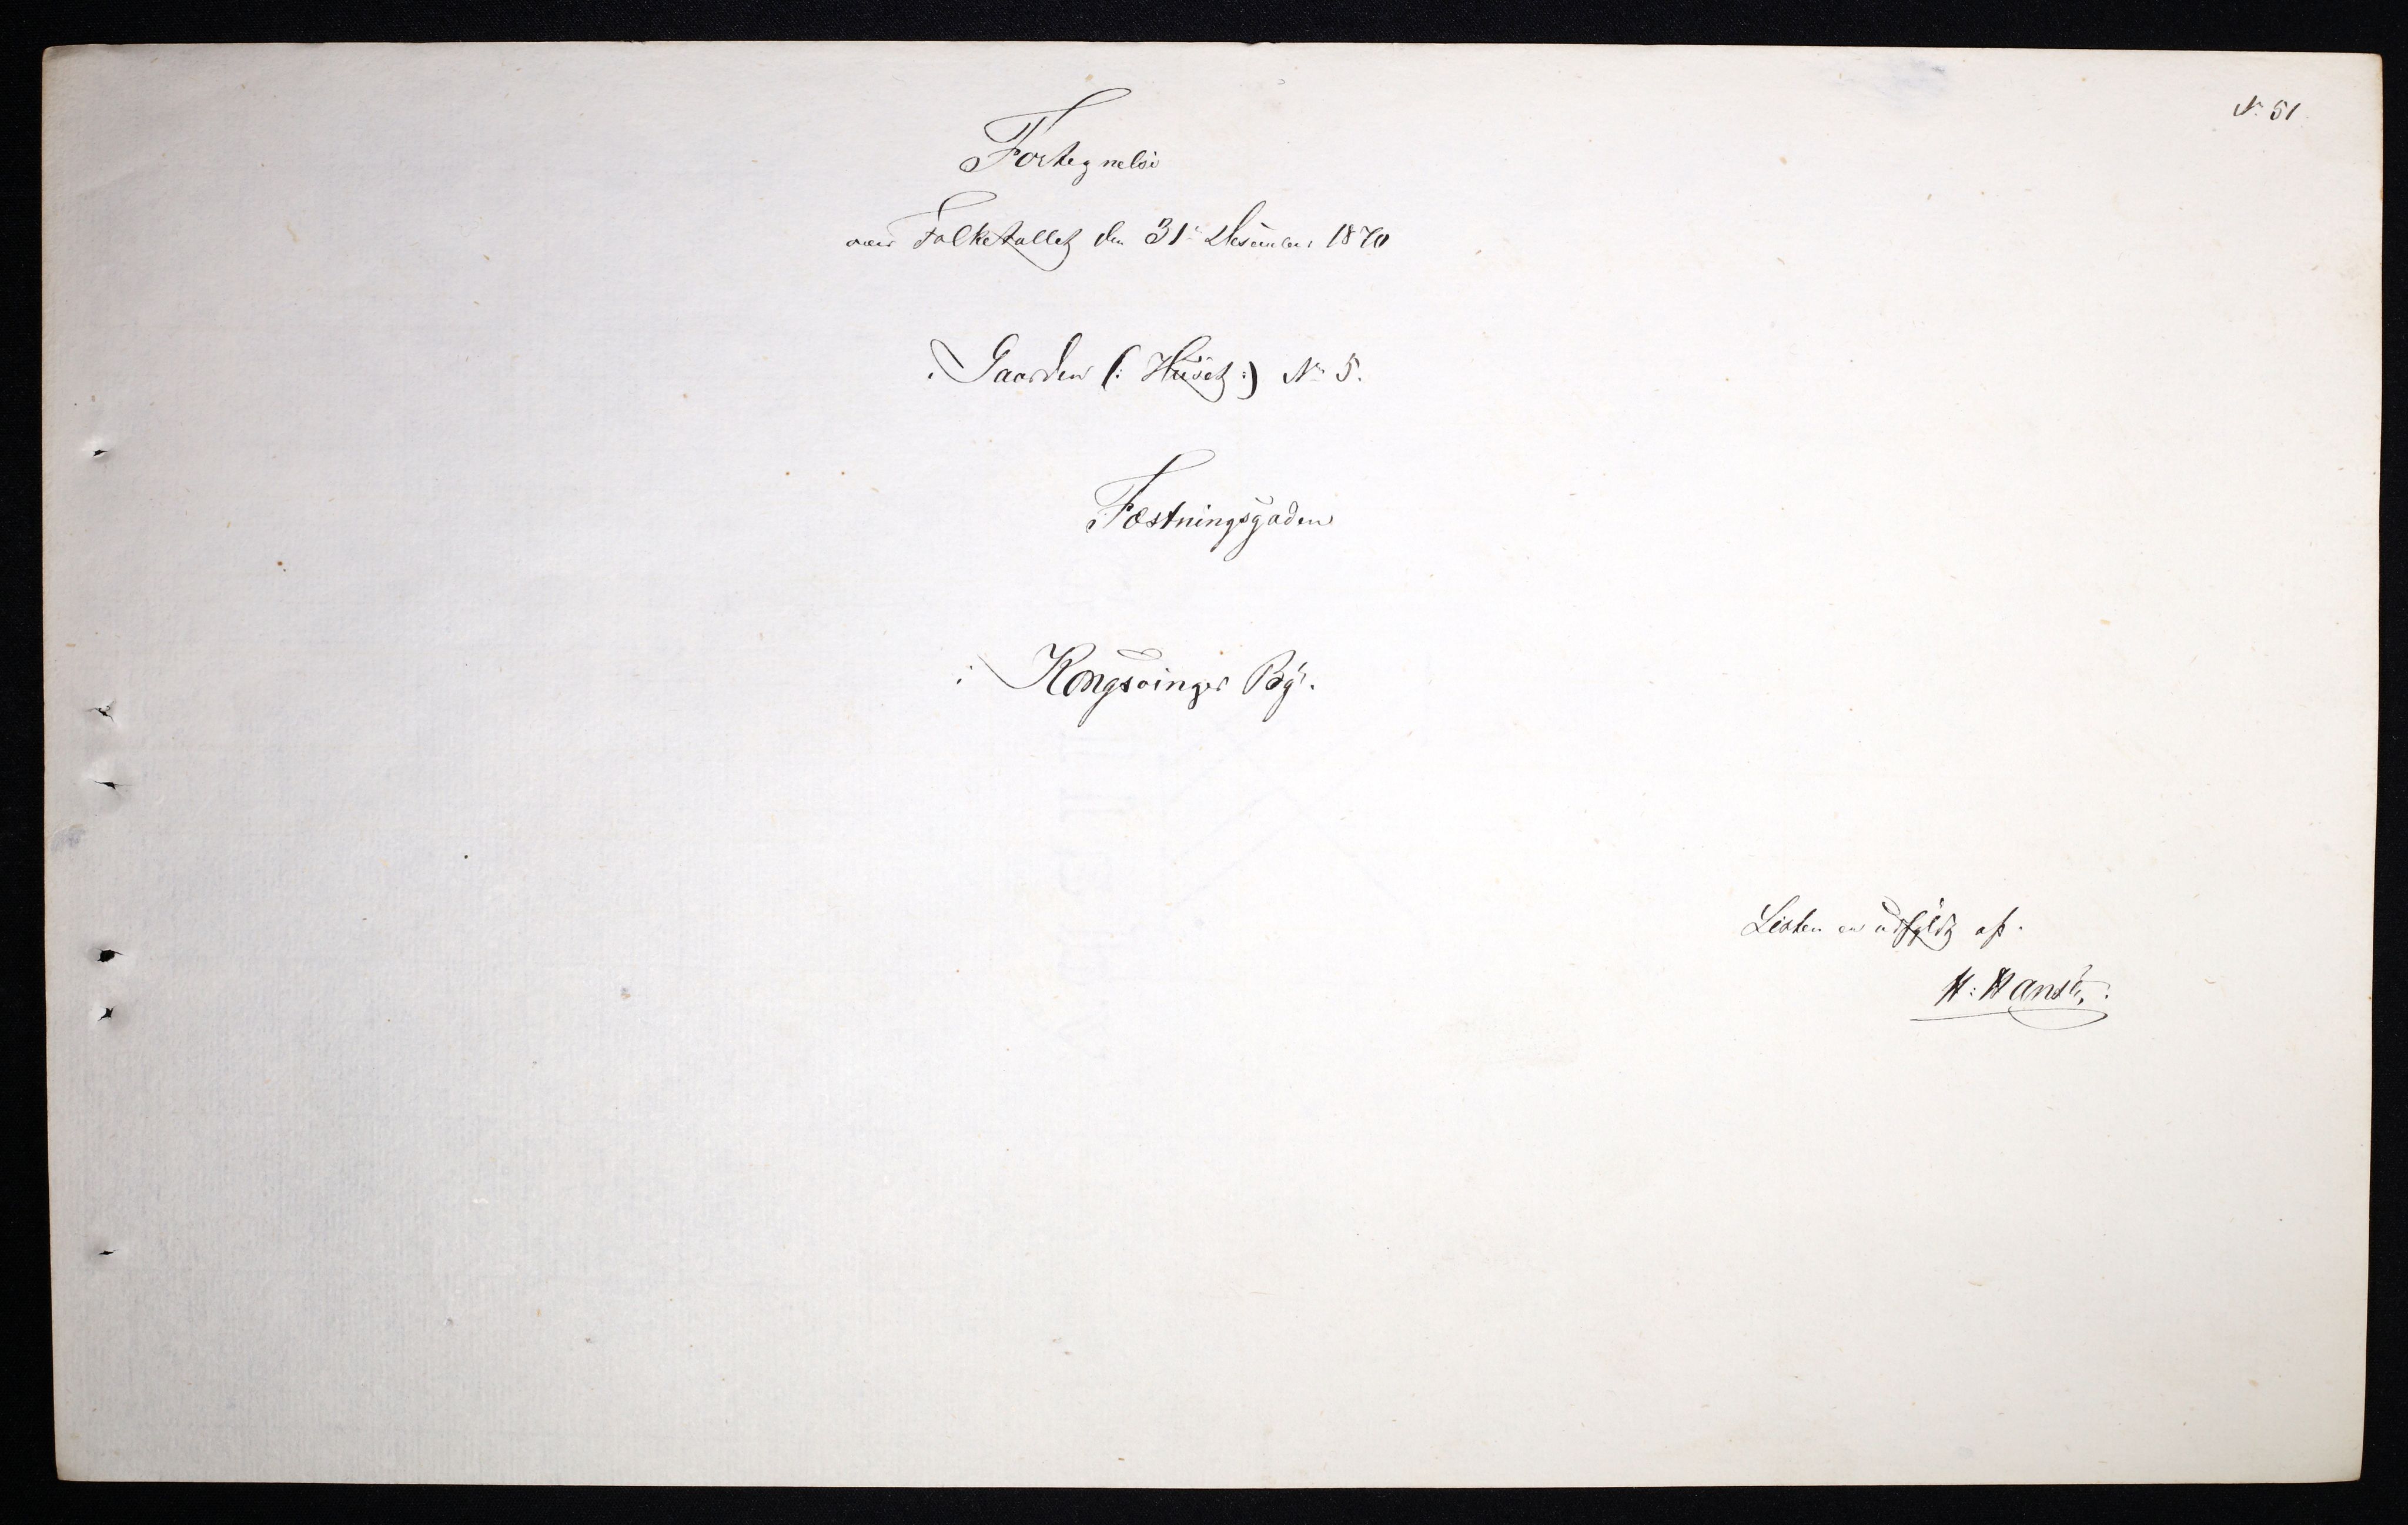 No 51
Fortegnelse
over Folketallet den 31te December 1870
i Gaarden (: Huset :) No 5.
Fæstningsgaden
i Kongsvinger By.
Listen er udfyldt af.
H: Hansen.